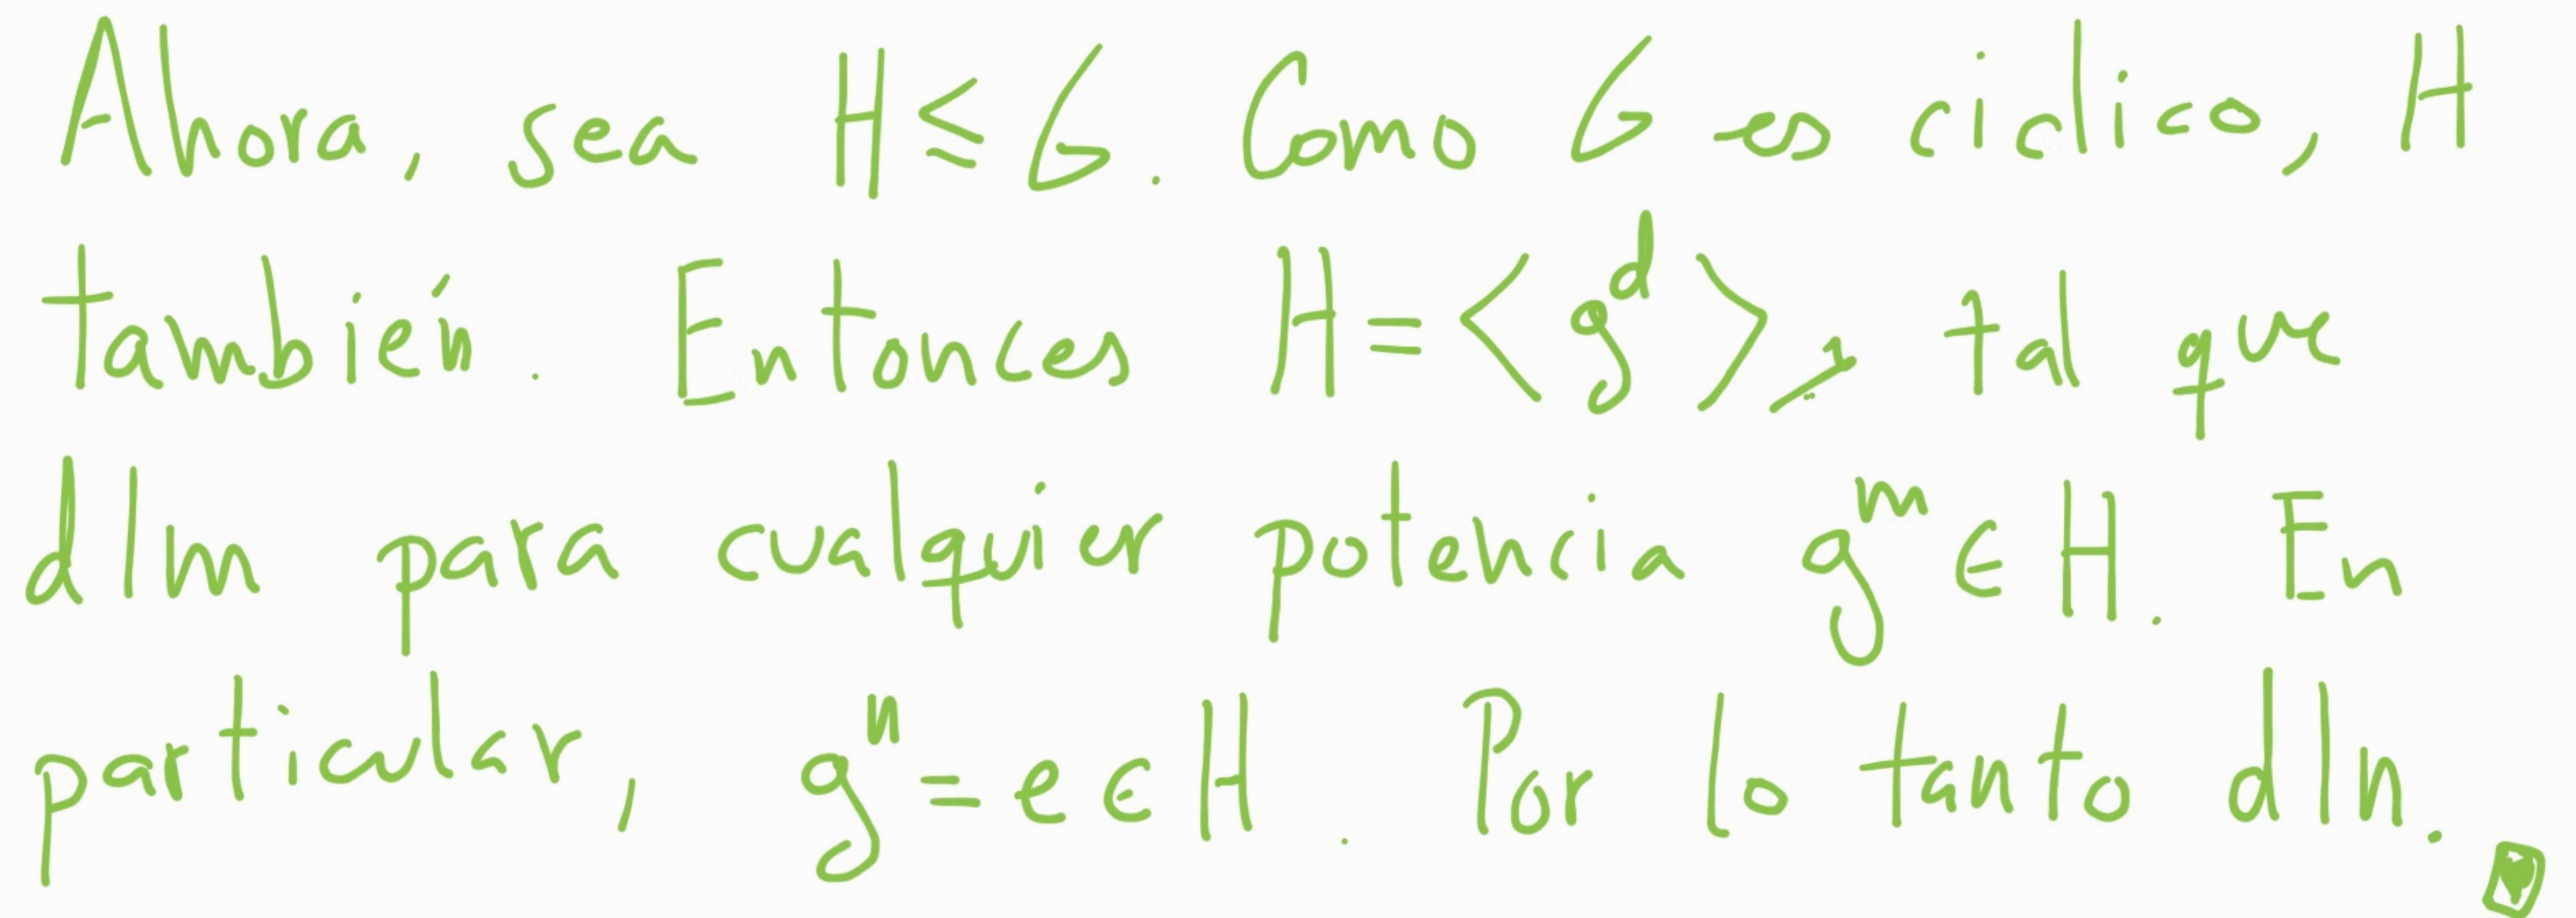 Ahora, sea H ≤ G. Como G es ciclico, H
también. Entonces H = <g^d>, tal que
d|m para cualquier potencia g^m ∈ H. En
particular, g^n = e ∈ H. Por lo tanto d|n.